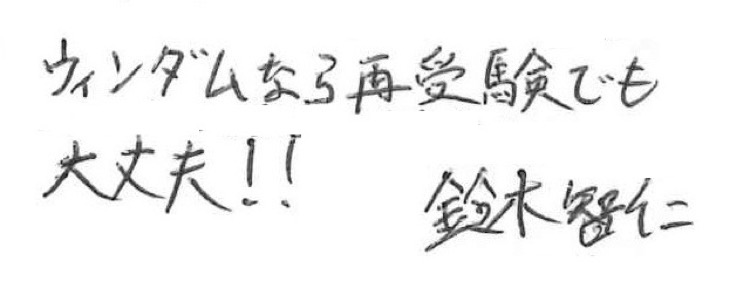 ウィンダムなら再受験でも
大丈夫!!
鈴木智仁